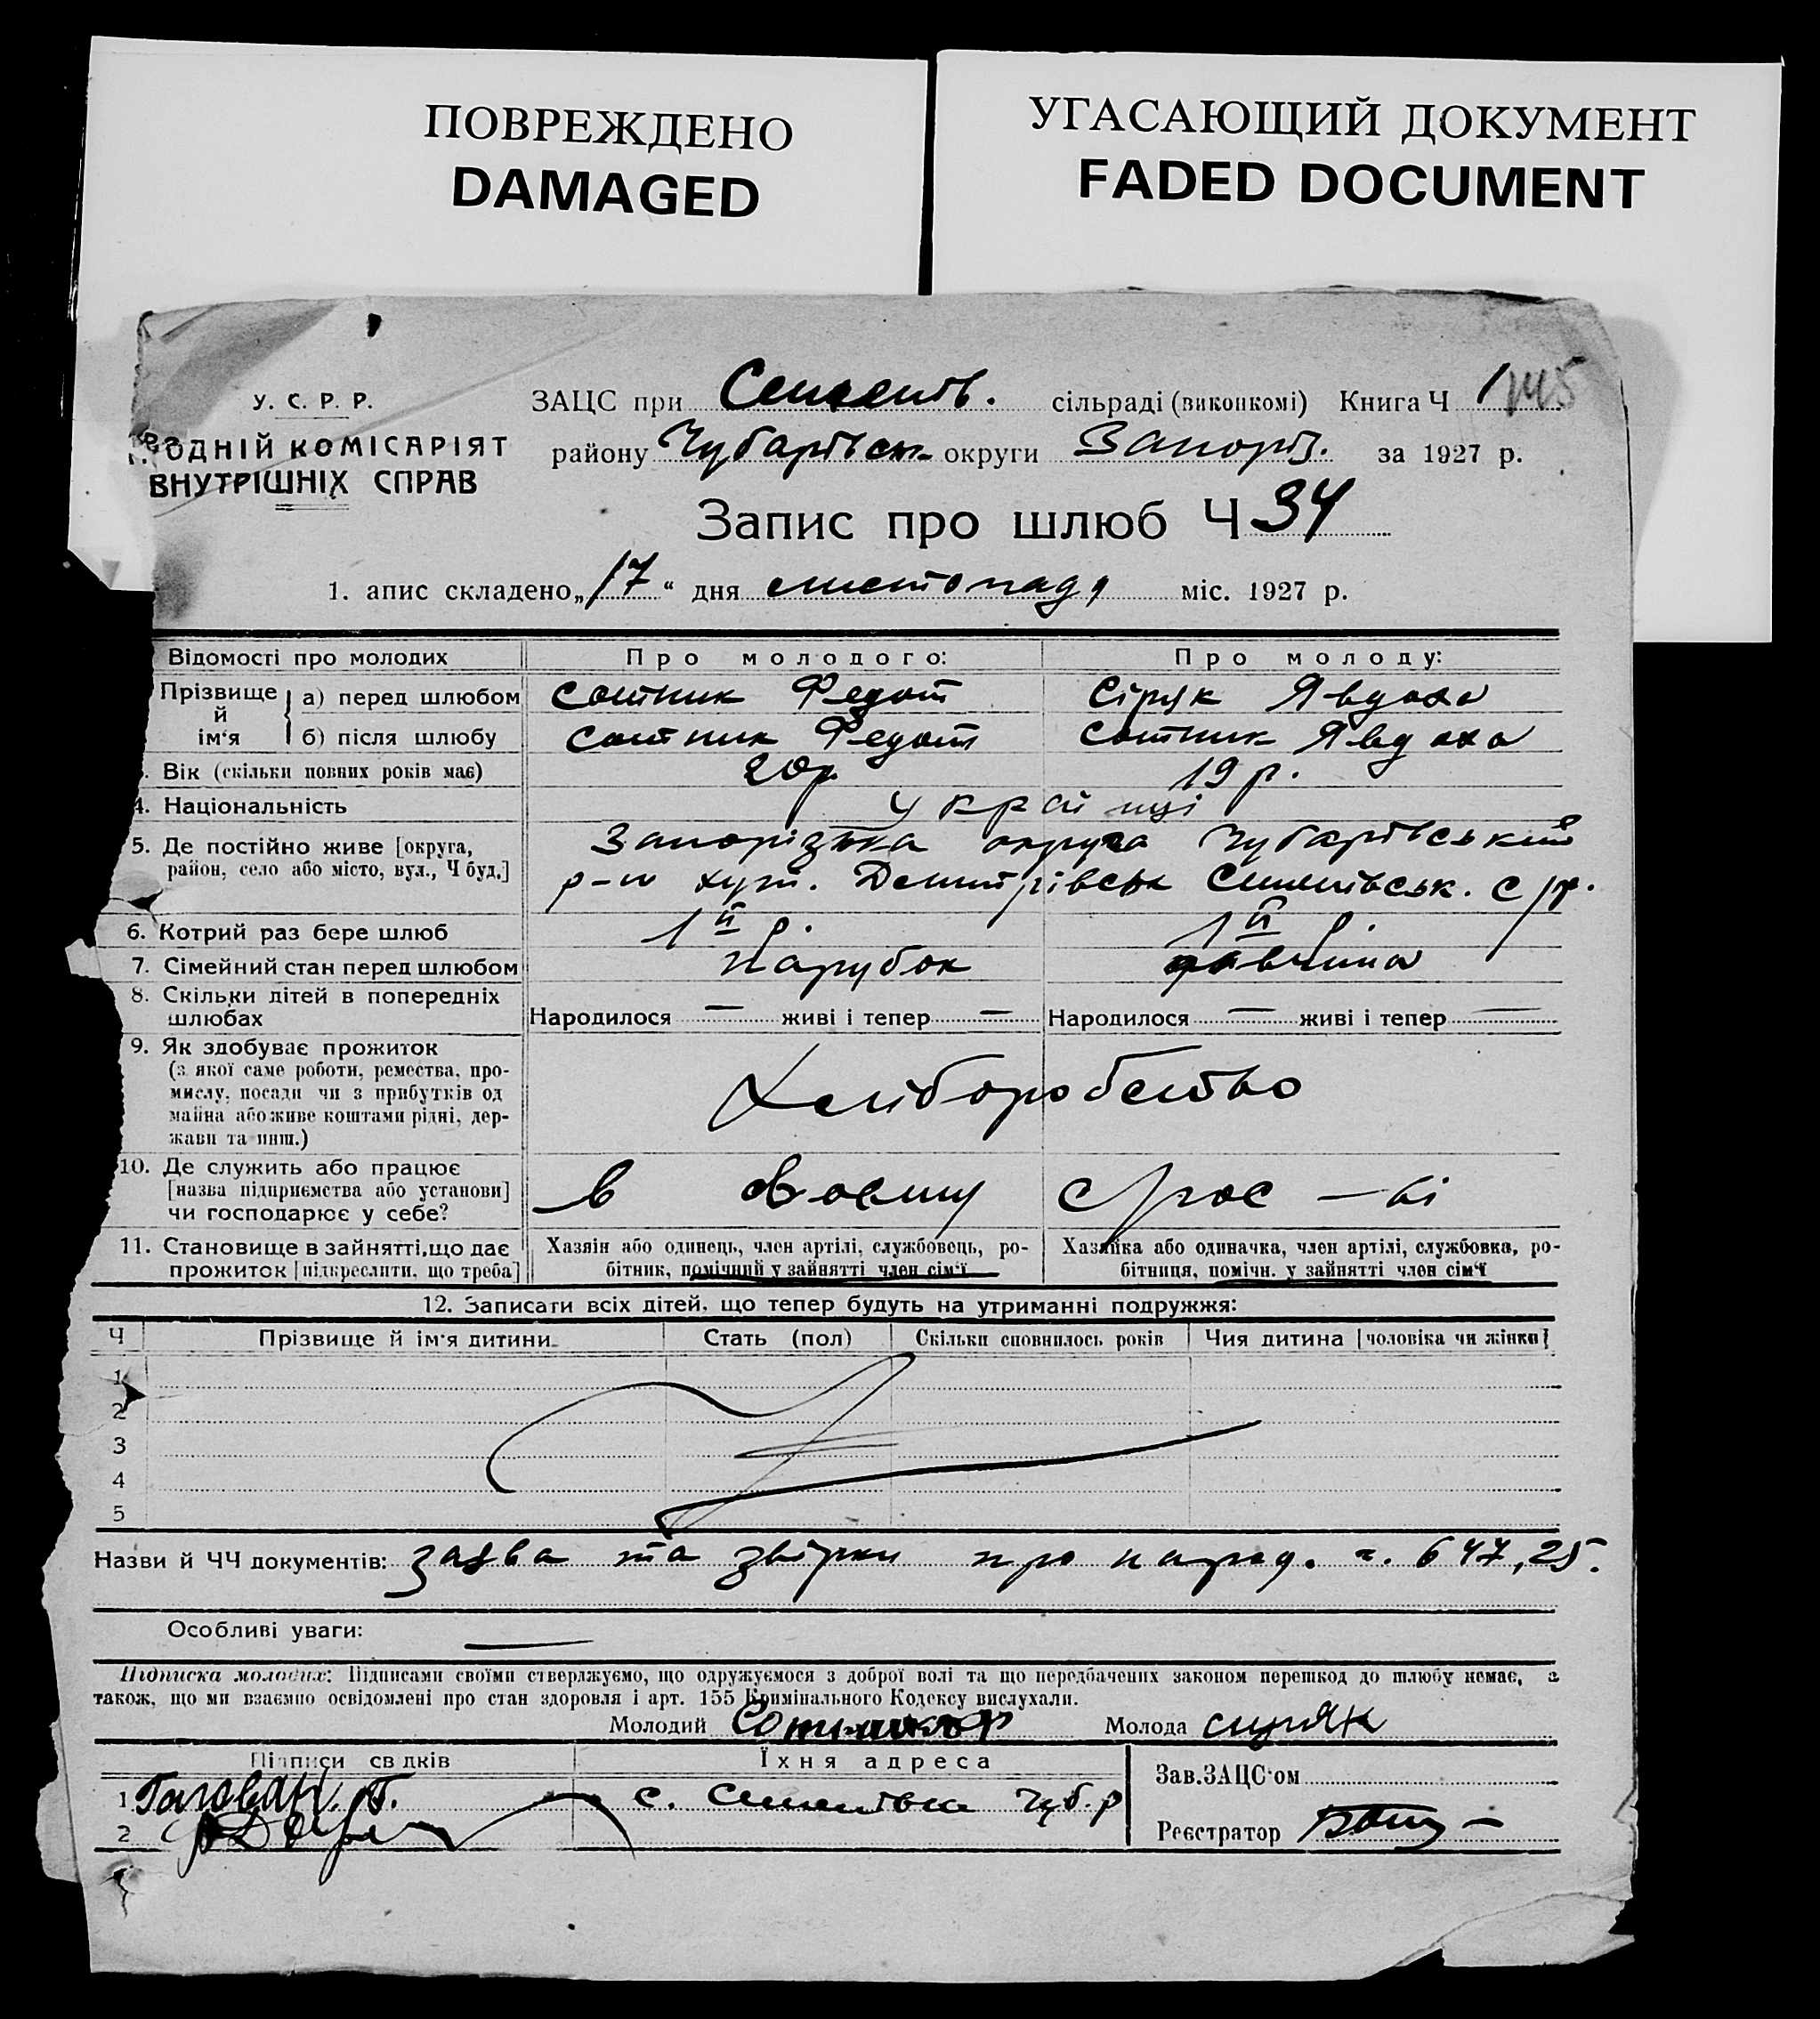 ПОВРЕЖДЕНО
DAMAGED
УГАСАЮЩИЙ ДОКУМЕНТ
FADED DOCUMENT
У. С. Р. Р.
ОДНІЙ КОМІСАРІЯТ
ВНУТРІШНІХ СПРАВ
ЗАЦС при сільраді (виконкомі) Книга Ч 1
району Чубарівськ округи Запоріз. за 1927 р.
Запис про шлюб Ч 34
1. апис складено „17“ дня листопаду міс. 1927 р.
Відомості про молодих Про молодого: Про молоду:
Прізвище й ім'я
а) перед шлюбом Сотник Федот Сіряк Явдоха
б) після шлюбу Сотник Федот Сотник Явдоха
. Вік (скільки повних років має) 20 р. 19 р.
4. Національність українці
5. Де постійно живе [округа, район, село або місто, вул., Ч буд.] Запорізька округа Чубарівський
р-н хут. Дмитрівськ Семенівськ. с/р.
6. Котрий раз бере шлюб 1й р. 1й р.
7. Сімейний стан перед шлюбом парубок дівчина
8. Скільки дітей в попередніх шлюбах Народилося — живі і тепер — Народилося — живі і тепер —
9. Як здобуває прожиток
(з якої саме роботи, ремества, про-
мислу, посади чи з прибутків од
майна або живе коштами рідні, дер-
жави та инш.)
Хліборобство
10. Де служить або працює
[назва підприємства або установи]
чи господарює у себе?
в своему
11. Становище в зайнятті, що дає
прожиток [підкреслити, що треба]
Хазяїн або одинець, член артілі, службовець, ро-
бітник, помічний у зайнятті член сім'ї
Хазяйка або одиначка, член артілі, службовка, ро-
бітниця, помічн. у зайнятті член сім'ї
12. Записати всіх дітей, що тепер будуть на утриманні подружжя:
Ч Прізвище й ім'я дитини Стать (пол) Скільки сповнилось років Чия дитина [чоловіка чи жінки]
1
2
3
4
5
Назви й ЧЧ документів: заява та про народ. ч. 647, 25.
Особливі уваги: —
Підписка молодих: Підписами своїми стверджуємо, що одружуємося з доброї волі та що передбачених законом перешкод до шлюбу немає, а
також, що ми взаємно освідомлені про стан здоровля і арт. 155 Кримінального Кодексу вислухали.
Молодий Молода сиряк
Підписи св дків Їхня адреса
Зав. ЗАЦС'ом
1 с. Семенівка Чуб. р
2
Реєстратор